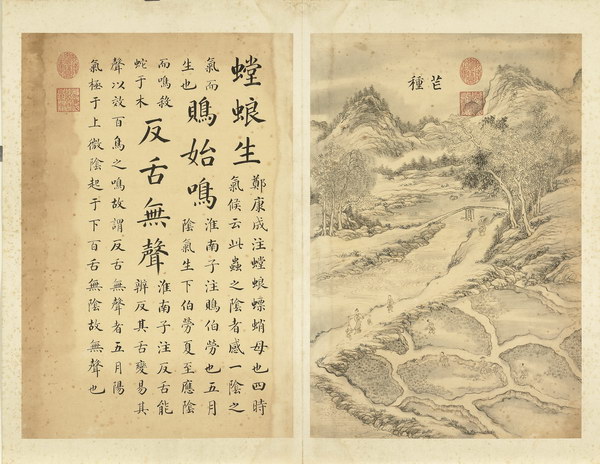 芒種
螳蜋生
鄭康成注螳蜋螵蛸母也四時
氣候云此蟲之陰者感一陰之
氣而
生也
鵙始鳴
淮南子注鵙伯勞也五月
陰氣生下伯勞夏至應陰
而鳴殺
蛇于木
反舌無聲
淮南子注反舌能
辦反其舌變易其
聲以效百鳥之鳴故謂反舌無聲者五月陽
氣極于上微陰起于下百舌無陰故無聲也